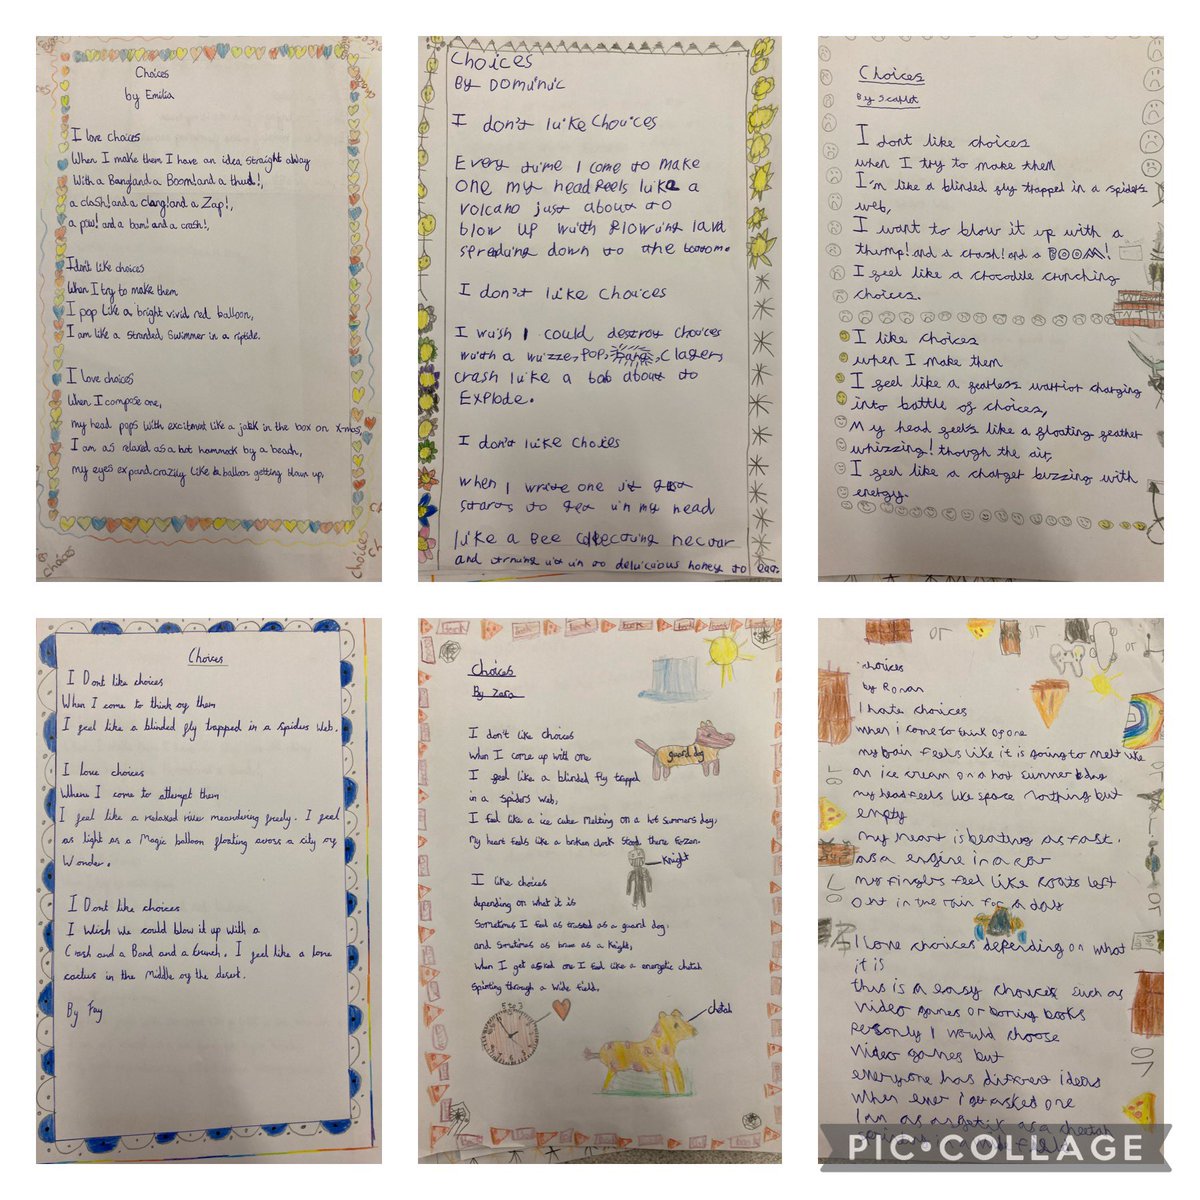 Choices
by Emilia
I love choices
When I make them I have an idea straight away
With a Bang!and a Boom!and a thud!,
a clash!and a clang!and a Zap!,
a pow! and a bam! and a crash!,
I don't like choices
When I try to make them
I pop like a bright vivid red balloon,
I am like a stranded swimmer in a riptide.
I love choices
When I compose one,
my head pops with excitment like a jack in the box on X-mas,
I am as relaxed as a hot hammock by a beach,
my eyes expand crazily like a balloon getting blown up.
choices
choices
Choices
By Dominic
I don't like Choices
Every time I come to make
one my head feels like a
volcano just about to
blow up with flowing lava
spreading down to the bottom.
I don't like Choices
I wish I could destroy choices
with a wizze, POP, Bang, Clager,
crash like a tab about to
Explode.
I don't like Choies
when I write one it
starts to get in my head
like a Bee collecting nectar
and turning it in to delicious honey to
Choices
By Scarlot
I dont like choices
when I try to make them
I'm like a blinded fly trapped in a spiders
web,
I want to blow it up with a
thump! and a crash! and a BOOM!
I feel like a crocodile crunching
choices.
I like choices
when I make them
I feel like a fearless warrior charging
into battle of choices,
My head feels like a floating feather
whizzing! though the air,
I feel like a charger buzzing with
energy.
Choices
I Dont like choices
When I come to think of them
I feel like a blinded fly trapped in a spiders web.
I love choices
When I come to attempt them
I feel like a relaxed river meandering freely. I feel
as light as a Magic balloon floating across a city of
Wonder.
I Dont like choices
I Wish We could blow it up With a
Crash and a Band and a Crunch. I feel like a lone
cactus in the middle of the desert.
By Fay
book book book book book book
Choices
By Zara
I don't like choices
When I come up with one
I feel like a blinded fly trapped
in a spiders web,
I feel like a ice cube melting on a hot summers day,
My heart feels like a broken clock stood there frozen.
I like choices
depending on what it is
Sometimes I feel as trusted as a guard dog,
and Somtimes as brave as a Knight,
When I get asked one I feel like a energetic chetah
Sprinting through a wide field,
guard dog
Knight
chetah
choices
by Ronan
I hate choices
when I come to think of one
my brain feels like it is going to melt like
an ice cream on a hot summer day
my head feels like space northing but
empty
my heart is beating as fast.
as a engine in a car
my fingers feel like boats left
out in the rain for a day
I love choices depending on what
it is
this is a easy choices such as
video games or boring books
personly I would choose
video games but
everyone has different ideas
when ever I get asked one
I am as as a cheetah
or
or
PIC•COLLAGE